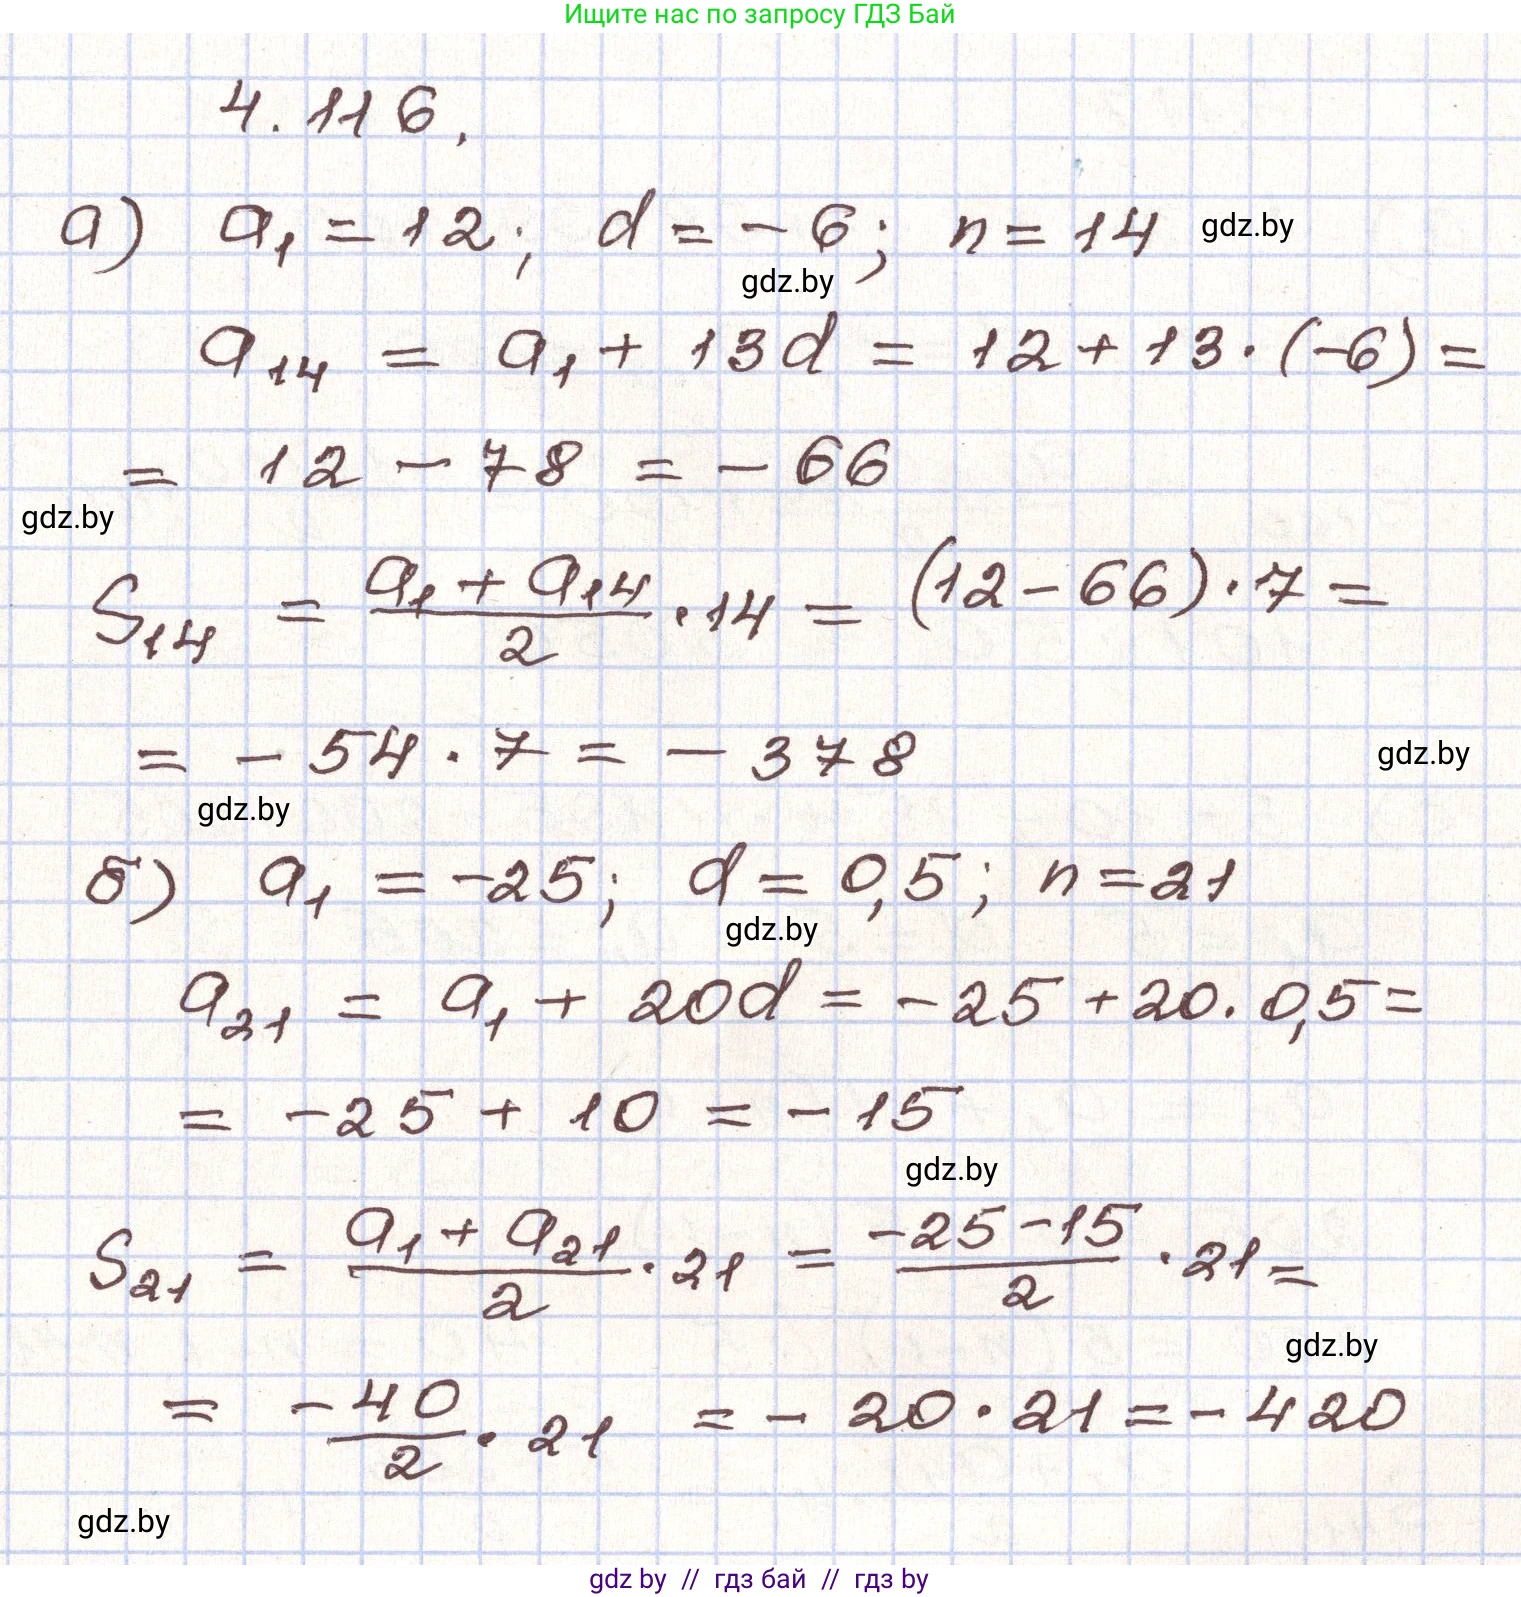 Ищите нас по запросу ГДЗ Бай
4.116.
а) a₁ = 12; d = -6; n = 14 gdz.by
gdz.by
a₁₄ = a₁ + 13d = 12 + 13 · (-6) =
= 12 - 78 = - 66
gdz.by
S₁₄ = (a₁ + a₁₄)/2 · 14 = (12 - 66) · 7 =
= - 54 · 7 = - 378 gdz.by
gdz.by
б) a₁ = -25; d = 0,5; n = 21
gdz.by
a₂₁ = a₁ + 20d = -25 + 20 · 0,5 =
= -25 + 10 = - 15
gdz.by
S₂₁ = (a₁ + a₂₁)/2 · 21 = (-25 - 15)/2 · 21 =
gdz.by
= - 40/2 · 21 = - 20 · 21 = - 420
gdz.by
gdz by // гдз бай // гдз by